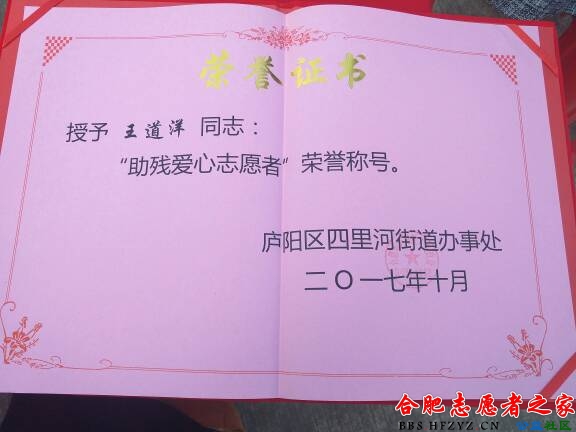 荣誉证书
授予 王道洋 同志：
“助残爱心志愿者”荣誉称号。
庐阳区四里河街道办事处
二〇一七年十月
合肥志愿者之家
BBS.HFZYZ.CN